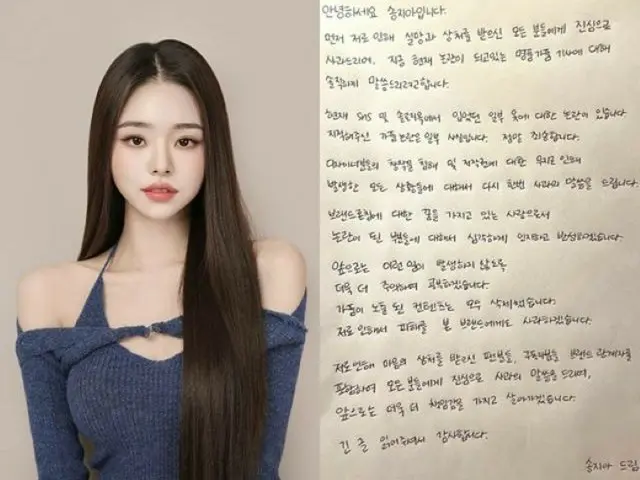 안녕하세요 송지아입니다.
먼저 저로 인해 실망과 상처를 받으신 모든 분들에게 진심으로
사과드리며, 지금 현재 논란이 되고있는 명품가품 기사에 대해
솔직하게 말씀드리려고합니다.
현재 SNS 및 솔로지옥에서 입었던 일부 옷에 대한 논란이 있습니다
지적해주신 가품논란은 일부 사실입니다. 정말 죄송합니다.
디자이너분들의 창작물 침해 및 저작권에 대한 무지로 인하여
발생한 모든 상황들에 대해서 다시 한번 사과의 말씀을 드립니다.
브랜드론칭에 대한 꿈을 가지고 있는 사람으로서
논란이 된 부분들에 대해서 심각하게 인지하고 반성하겠습니다.
앞으로는 이런 일이 발생하지 않도록
더욱 더 주의하며 공부하겠습니다.
가품이 노출 된 컨텐츠는 모두 삭제했습니다.
저로 인해서 피해를 본 브랜드에게도 사과하겠습니다.
저로인해 마음의 상처를 받으신 팬분들, 구독자분들 브랜드 관계자를
포함하여 모든 분들에게 진심으로 사과의 말씀을 드리며,
앞으로는 더욱 더 책임감을 가지고 살아가겠습니다.
긴 글 읽어주셔서 감사합니다.
송지아 드림